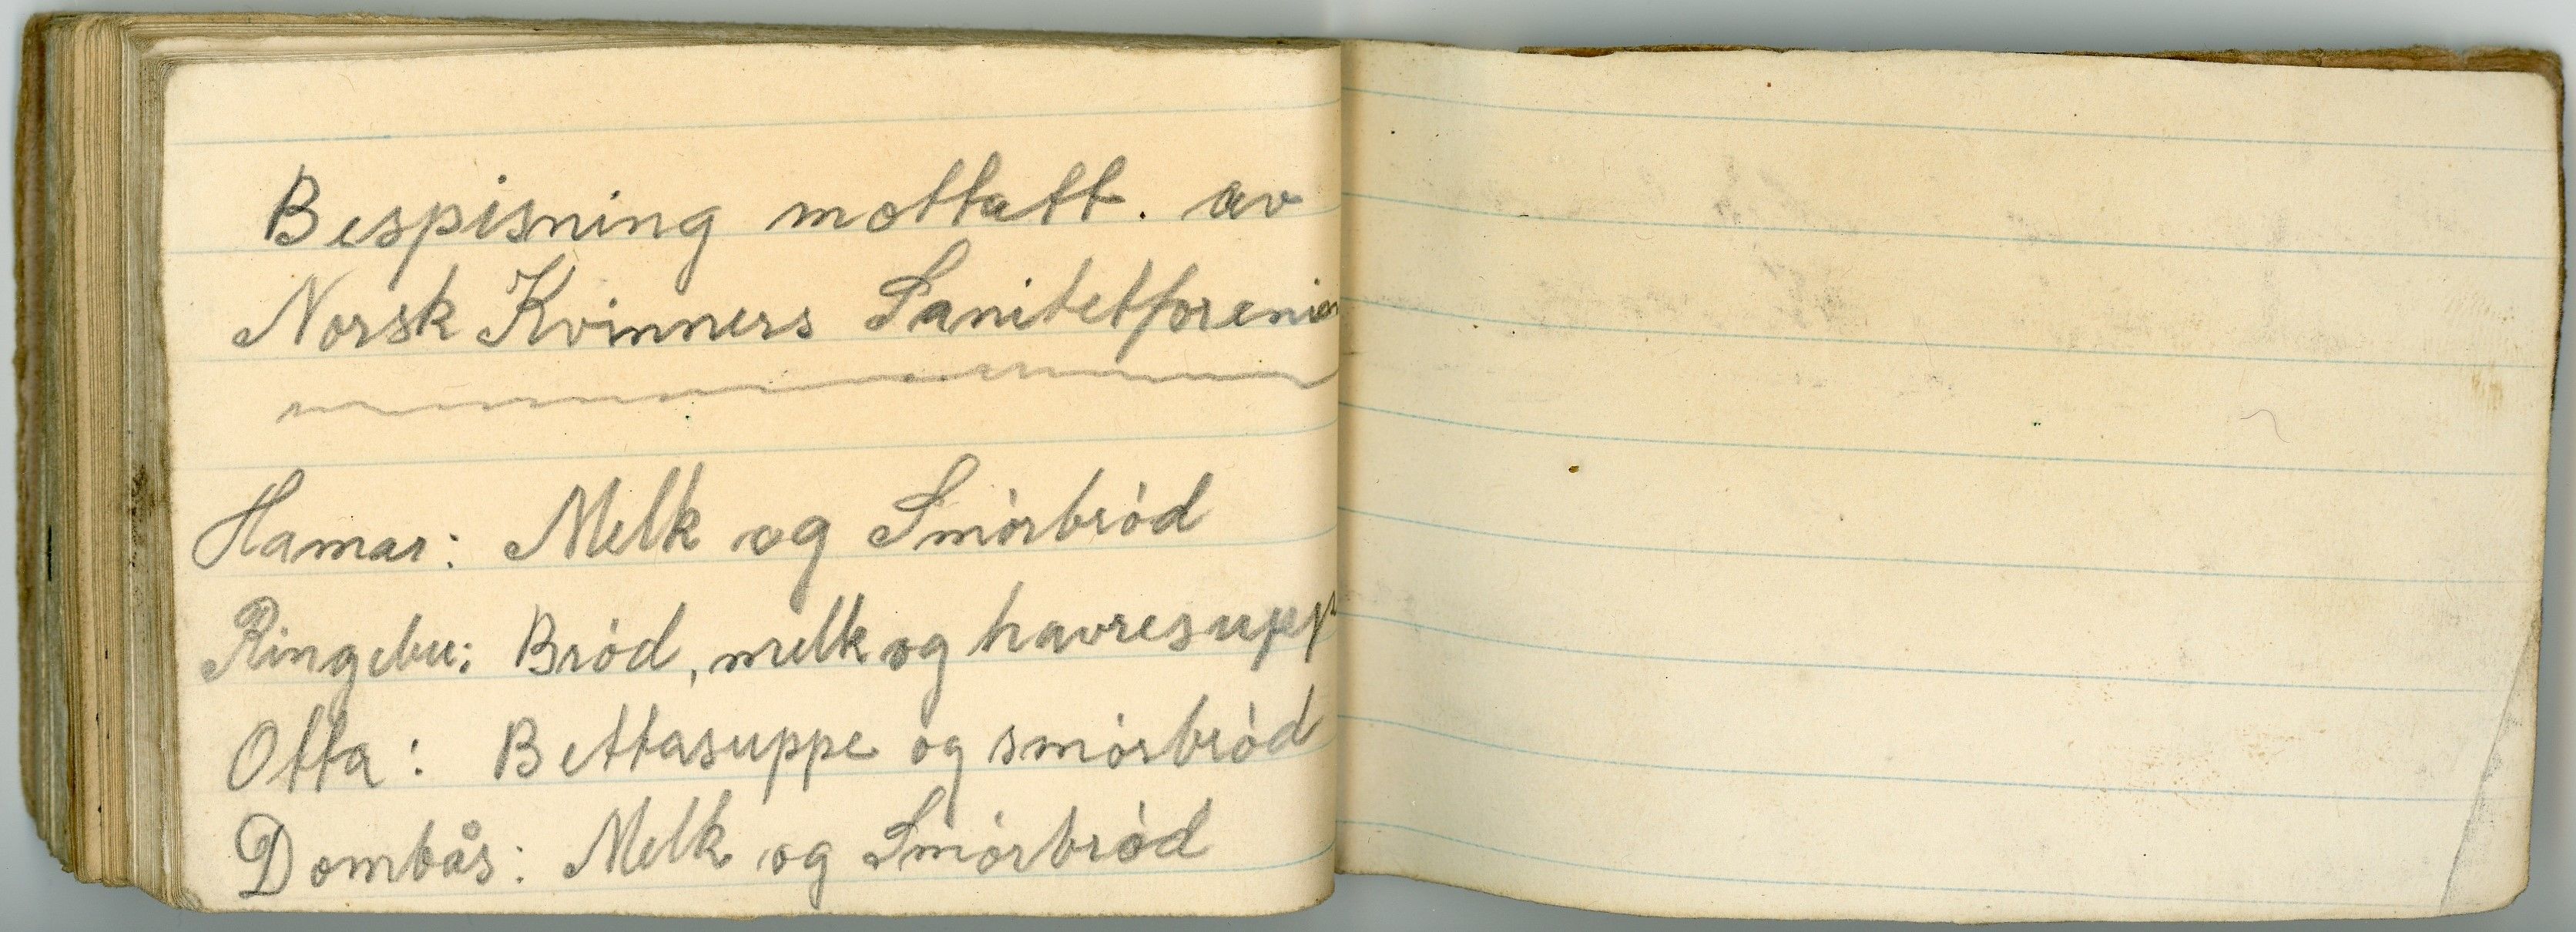 Bespisning mottatt. av
Norsk Kvinners Sanitetforenien
Hamar: Melk og Smórbród
Ringebu: Bród, melk og havresupp
Otta: Bettasuppe og smórbród
Dombås: Melk og Smórbród